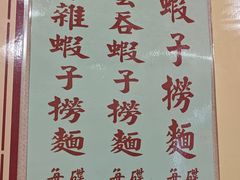 蝦子撈麵 每碟
吞蝦子撈麵 每碟
雜蝦子撈麵 每碟